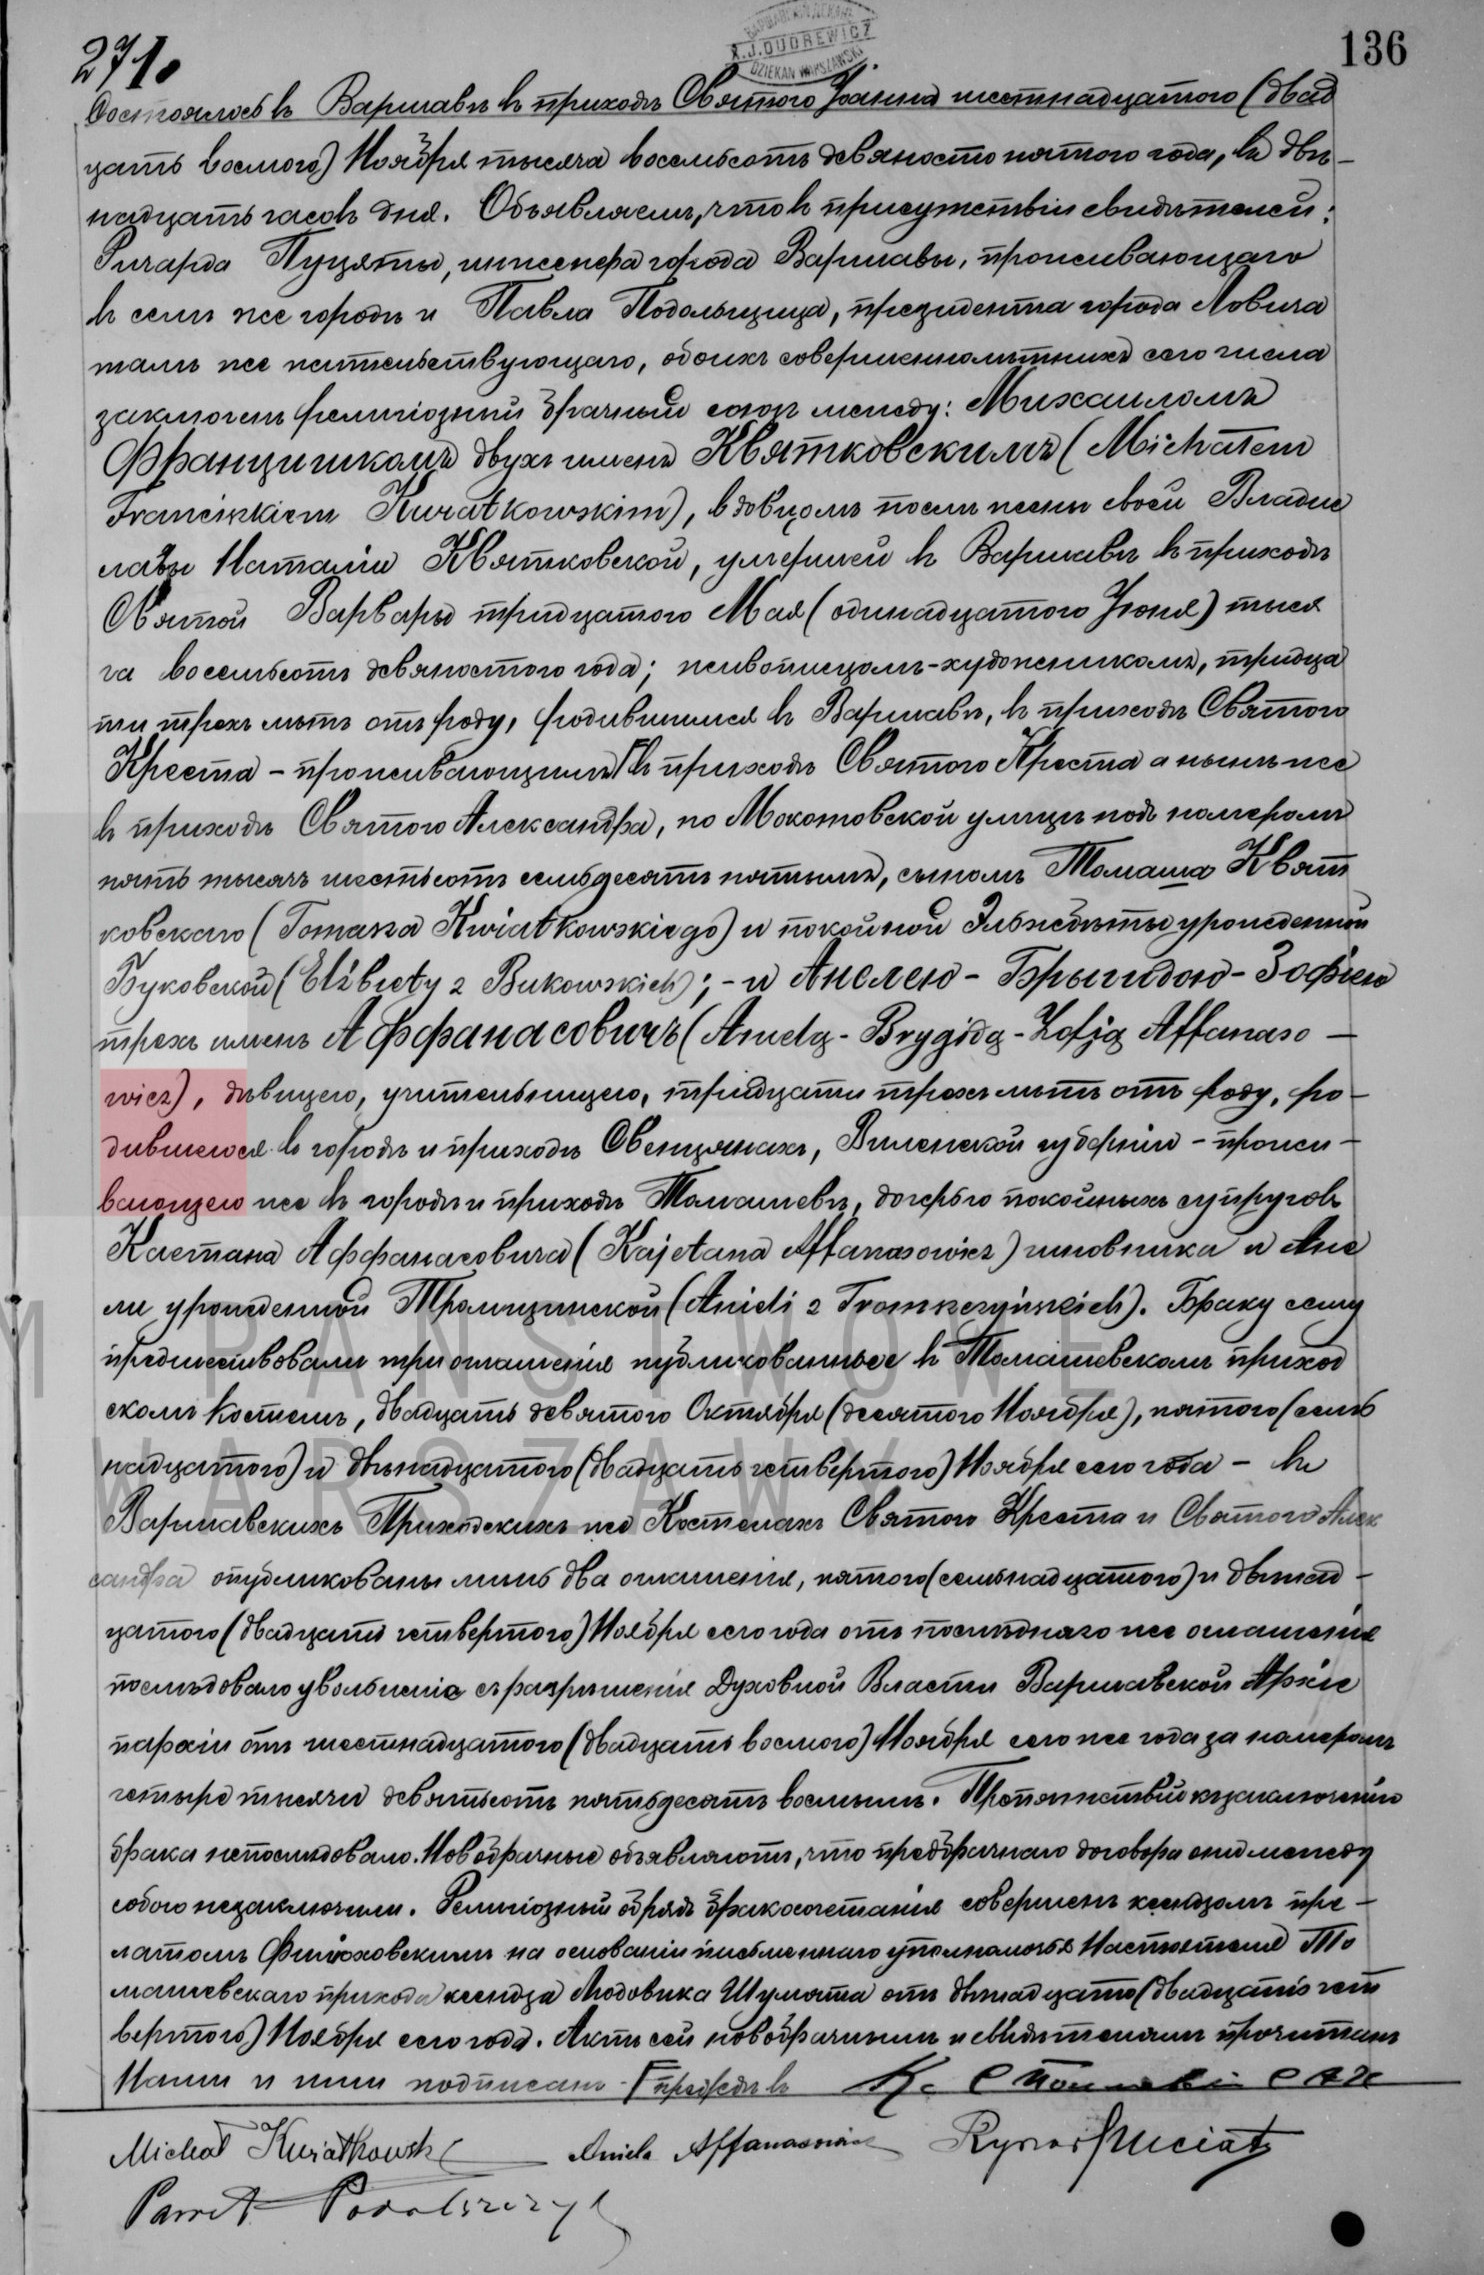 271.
136
X. J. DUDREWICZ
DZIEKAN WARSZAWSKI
Состоялось въ Варшавѣ въ приходѣ Святого Іоанна шестнадцатого (двад
цать восьмого) Ноября тысяча восемьсотъ девяносто пятого года, въ двѣ-
надцать часовъ дня. Объявляемъ, что въ присутствіи свидѣтелей:
Ричарда Пуцяты, инженера города Варшавы, проживающаго
въ семъ же городѣ и Павла Подольщица, президента города Ловича
тамъ же жительствующаго, обоихъ совершеннолѣтнихъ сего числа
заключенъ религіозный брачный союзъ между: Михаиломъ
Францишкомъ двухъ именъ Квятковскимъ (Michałem
Franciszkiem Kwiatkowskim), вдовцомъ послѣ жены своей Владис
лавы Наталіи Квятковской, умершей въ Варшавѣ въ приходѣ
Святой Варвары тридцатого Мая (одинадцатого Іюня) тыся
ча восемьсотъ девяностого года; живописцомъ-художникомъ, тридца
ти трехъ лѣтъ отъ роду, родившимся въ Варшавѣ, въ приходѣ Святого
Креста - проживающимъ Г въ приходѣ Святого Креста а нынѣ же
въ приходѣ Святого Александра, по Мокотовской улицѣ подъ номеромъ
пять тысячъ шестьсотъ семьдесятъ пятымъ, сыномъ Томаша Квят
ковскаго (Tomasza Kwiatkowskiego) и покойной Эльжбѣты урожденной
Буковской (Elżbiety z Bukowskich); - и Анелею - Брыгидою - Зофіею
трехъ именъ Аффанасовичъ (Anielą - Brygidą - Zofją Affanaso -
wicz), дѣвицею, учительницею, тридцати трехъ лѣтъ отъ роду, ро-
дившеюся въ городѣ и приходѣ Свенцянахъ, Виленской губерніи - прожи-
вающею же въ городѣ и приходѣ Томашевѣ, дочерью покойныхъ супруговъ
Каетана Аффанасовича (Kajetana Affanasowicz) чиновника и Ане
ли урожденной Тромщинской (Anieli z Tromszczyńskich). Браку сему
предшествовали три оглашенія публикованные въ Томашевскомъ приход
скомъ Костелѣ, двадцать девятого Октября (десятого Ноября), пятого (семь
надцатого) и двѣнадцатого (двадцать четвертого) Ноября сего года - въ
Варшавскихъ Приходскихъ же Костелахъ Святого Креста и Святого Алек
сандра опубликованы лишь два оглашенія, пятого (семьнадцатого) и двѣнад-
цатого (двадцать четвертого) Ноября сего года отъ послѣдняго же оглашенія
послѣдовало увольненіе съ разрѣшенія Духовной Власти Варшавской Архіе
пархіи отъ шестнадцатого (двадцать восьмого) Ноября сего же года за номеромъ
четыре тысячи девятьсотъ пятьдесятъ восьмымъ. Препятствій къ заключенію
брака непослѣдовало. Новобрачные объявляютъ, что предбрачнаго договора они между
собою незаключили. Религіозный обрядъ бракосочетанія совершенъ ксендзомъ пре-
латомъ на основаніи письменнаго уполномочья Настоятеля То
машевскаго прихода ксендза Людовика Шумота отъ двѣнадцато (двадцать чет
вертого) Ноября сего года. Актъ сей новобрачнымъ и свидѣтелямъ прочитанъ
Нами и ими подписанъ - Г прежде въ
Michał Kwiatkowski Aniela Affanasowicz Ryszard Puciata
Paweł Podolszczyc
PAŃSTWOWE
WARSZAWY